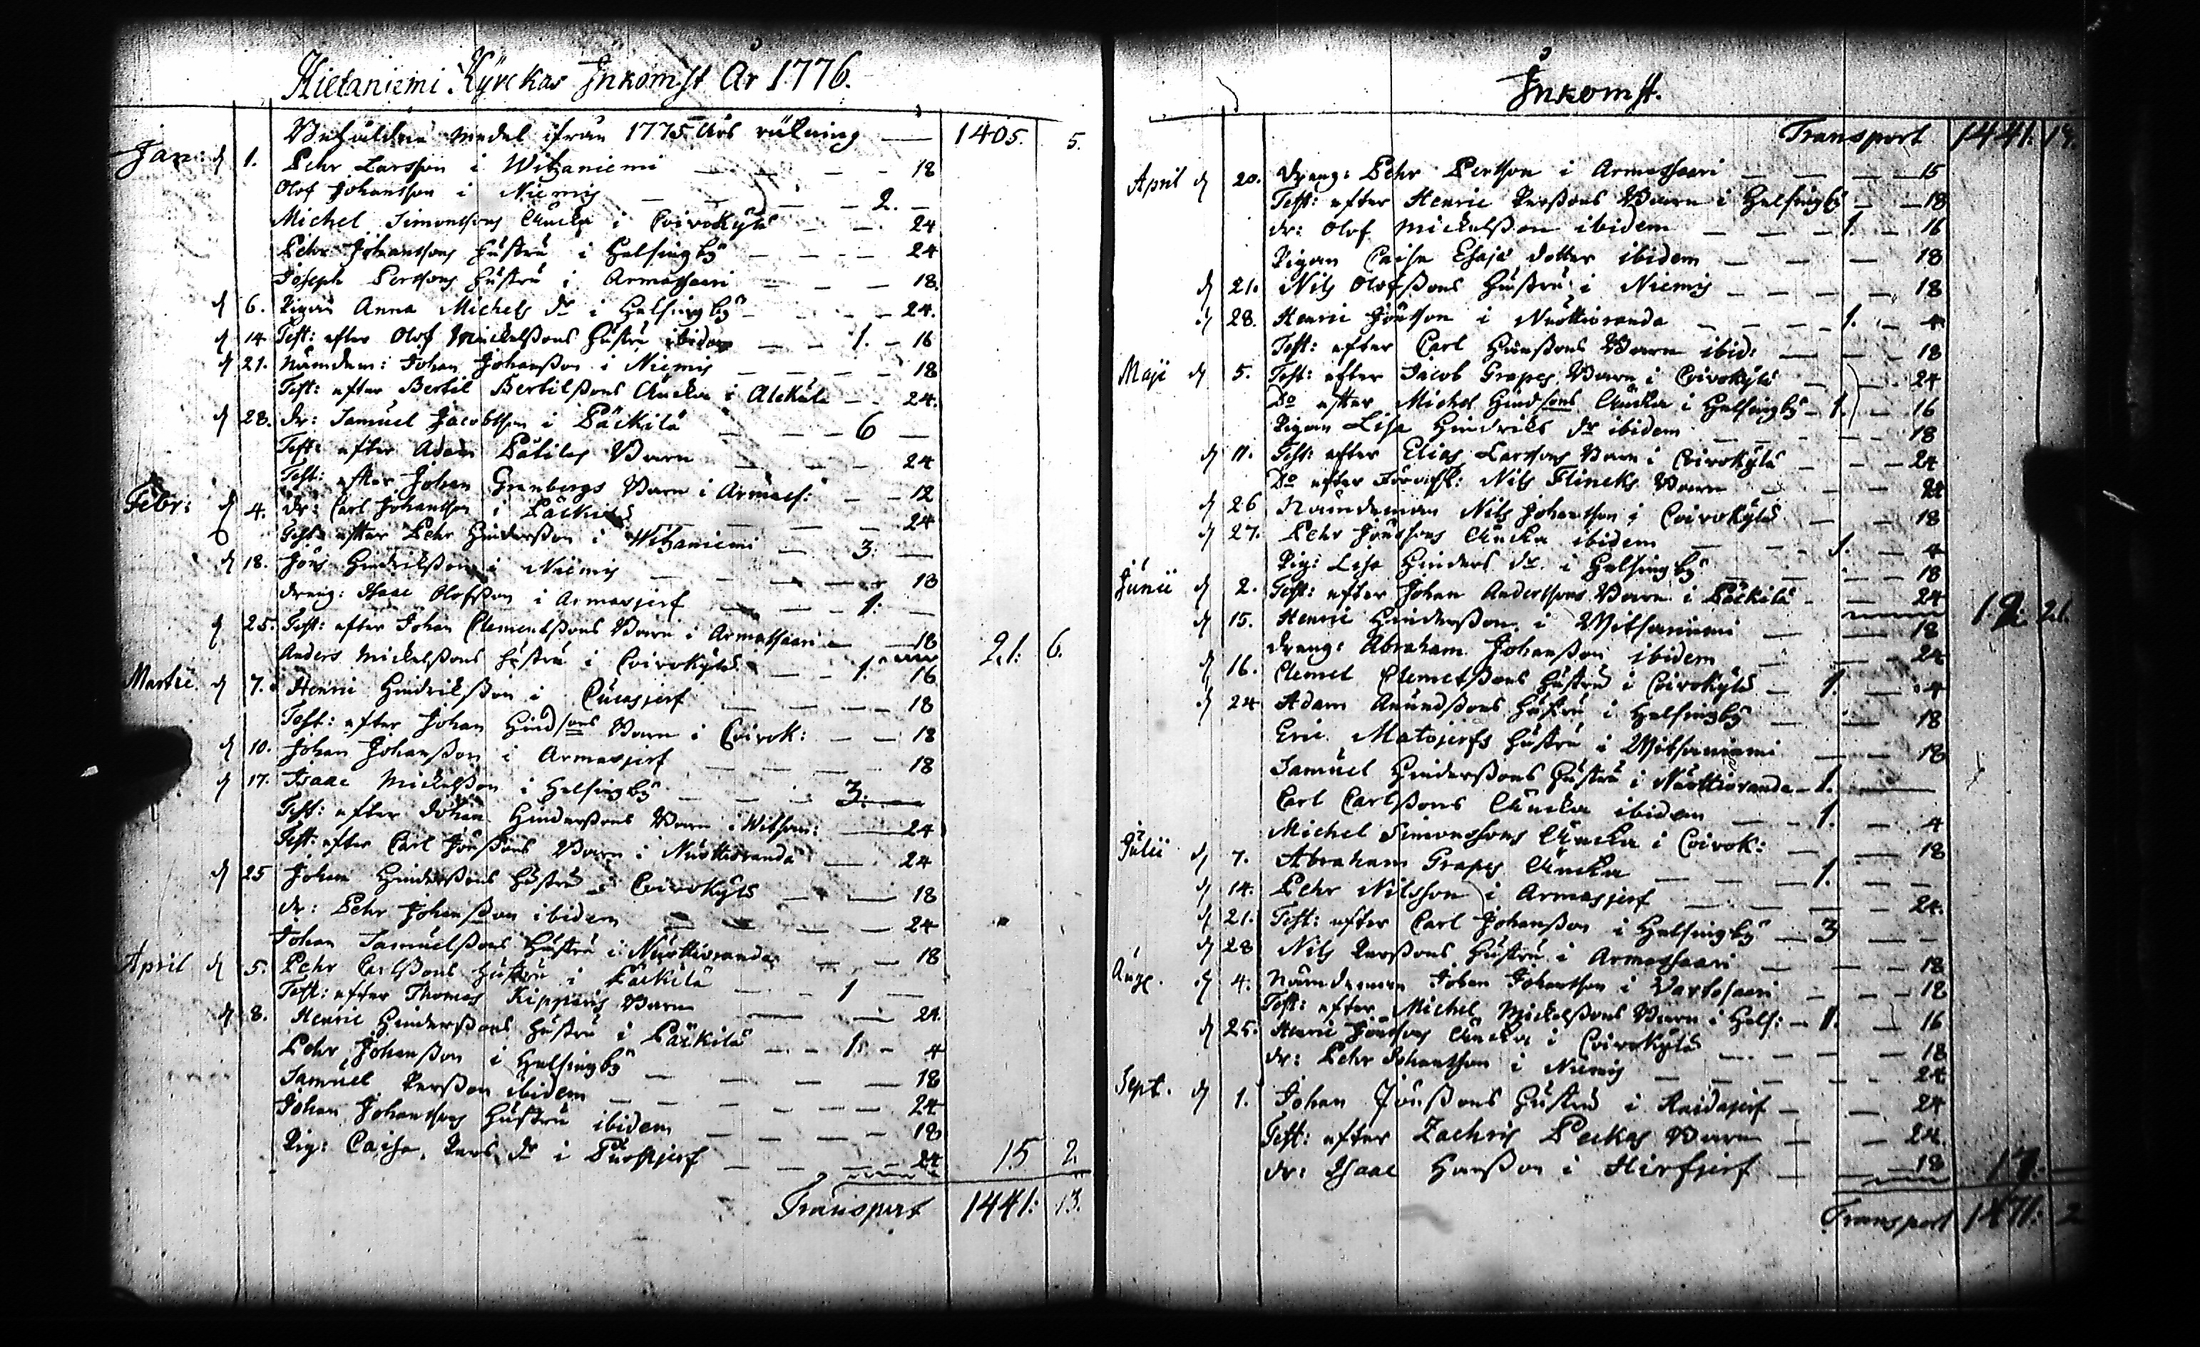 Hietaniemi Kyrckas Inkomst År 1776.
Behåldne medel ifrån 1775 Års räkning — 1405. 5.
Jan: d 1. Pehr Larsson i Witzaniemi — 18
Olof Johansson i Niemis — 2. —
Michel Simonssons Äncka i Coivokylä — 24
Pehr Johanssons hustru i Helsingby — 24
Joseph Perssons hustru i Armassaari — 18.
d 6. Pigan Anna Michels dr i Helsingby — 24.
d 14 Test: efter Olof Mickelssons hustru ibidem — 1. — 16
d 21. Nämdem: Johan Johansson i Niemis — 18
Test: efter Bertil Bertilssons Äncka i Alckula — 24.
d 28. dr: Samuel Jacobsson i Päckilä — 6 —
Test: efter Adam Barn — 24
Test: efter Johan Grenbergs Barn i Armass: — 12
Febr: d 4. dr: Carl Johansson i Päckilä — 24
Test: efter Pehr Hindersson i Witzaniemi — 3. —
d 18. Jöns Hindriksson i Niemis — 18
dräng: Isaac Olofsson i Armasjerf — 1. —
d 25. Test: efter Johan Clementssons Barn i Armassaari — 18
Anders Mickelssons hustru i Coivokylä — 1. 16 21: 6.
Martii d 7. Henric Hindriksson i — 18
Test: efter Johan Hindsons Barn i Coivok: — 18
d 10. Johan Johansson i Armasjerf — 18
d 17. Isaac Mickelsson i Helsingby — 3. —
Test: efter Johan Hinderssons Barn i Witsani: — 24
Test: efter Carl Jönssons Barn i Nuottioranda — 24
d 25 Johan Hinderssons hustru i Coivokylä — 18
dr: Pehr Johansson ibidem — 24
Johan Samuelssons hustru i Nuottioranda — 18
April d 5. Pehr Carlssons hustru i Päckilä — 1 —
Test: efter Thomas Kipparis Barn — 24
d 8. Henric Hinderssons hustru i Päckilä — 1. — 4
Pehr Johansson i Helsingby — 18
Samuel Persson ibidem — 24
Johan Johanssons hustru ibidem — 18
Pig: Caisa Pers dr i — 24 15 2
Transport 1441: 13.
Inkomst.
Transport 1441: 13.
April d 20. dräng: Pehr Persson i Armassaari — 15
Test: efter Henric Perssons Barn i Helsingby — 18
dr: Olof Mickelsson ibidem — 1. — 16
Pigan Caisa Esaiæ dotter ibidem — 18
d 21. Nils Olofssons hustru i Niemis — 18
d 28. Henric Jönsson i Nuottioranda — 1. — 4
Test: efter Carl Hanssons Barn ibid: — 18
Maji d 5. Test: efter Jacob Grapes Barn i Coivokylä — 24
Do efter Michel Hindsons Äncka i Helsingby — 1. — 16
Pigan Lisa Hindriks dr ibidem — 18
d 11. Test: efter Elias Larssons Barn i Coivokylä — 24
Do efter Nils Flincks Barn — 24
d 26 Nämdeman Nils Johansson i Coivokylä — 18
d 27. Pehr Jönssons Äncka ibidem — 1. — 4
Pig: Lisa Hinders dr. i Helsingby — 18
Junii d 2. Test: efter Johan Anderssons Barn i Päckilä — 24 12: 21.
d 15. Henric Hindersson i Witsaniemi — 18
dräng: Abraham Johansson ibidem — 24
d 16. Clemet Clemetssons hustru i Coivokylä — 1. — 4
d 24 Adam Amundssons hustru i Helsingby — 18
Eric Matojerfs hustru i Witsaniemi — 18
Samuel Hinderssons hustru i Nuottioranda — 1. —
Carl Carlssons Äncka ibidem — 1. — 4
Michel Simonssons Äncka i Coivok: — 18
Julii d 7. Abraham Grapes Äncka — 1. —
d 14. Pehr Nilsson i Armasjerf — 24.
d 21. Test: efter Carl Johansson i Helsingby — 3 —
d 28 Nils Perssons hustru i Armassaari — 18
Aug. d 4. Nämdeman Johan Johansson i Vartosaari — 18
Test: efter Michel Mickelssons Barn i Hels: — 1. — 16
d 25. Henric Jönssons Äncka i Coivokylä — 18
dr: Pehr Johansson i Niemis — 24
Sept. d 1. Johan Jönssons hustru i Raidajerf — 24
Test: efter Zachris Peckas Barn — 24
dr: Isaac Hansson i Hirfjerf — 18 17. —
Transport 1471: 2